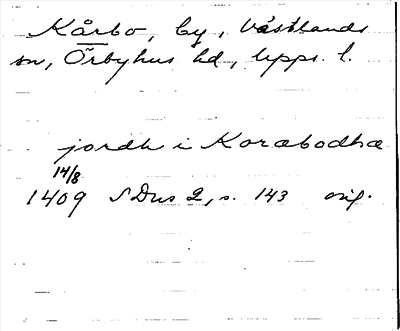 Kårbo, by, Västlands
sn, Örbyhus hd, Upps. l.
jordh i Korabodha
14/8
1409 SDns 2, s. 143 orig.